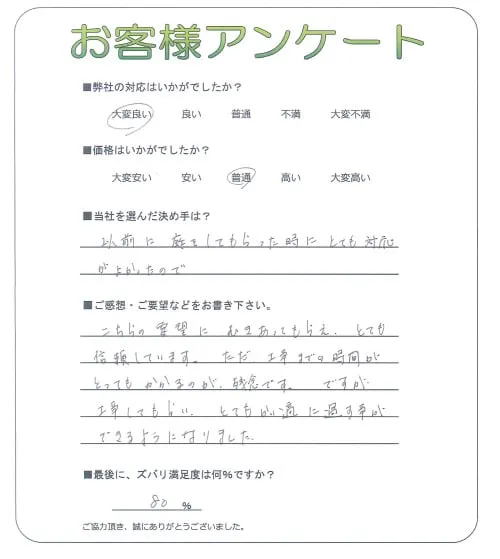 お客様アンケート
■弊社の対応はいかがでしたか？
大変良い 良い 普通 不満 大変不満
■価格はいかがでしたか？
大変安い 安い 普通 高い 大変高い
■当社を選んだ決め手は？
以前に 庭をしてもらった時に とても対応
がよかったので
■ご感想・ご要望などをお書き下さい。
こちらの要望に むきあってもらえ、とても
信頼しています。 ただ、工事までの時間が
とっても かかるのが、残念です。 ですが
工事してもらい、 とても かい適に過す事が
できるようになりました。
■最後に、ズバリ満足度は何％ですか？
80 ％
ご協力頂き、誠にありがとうございました。